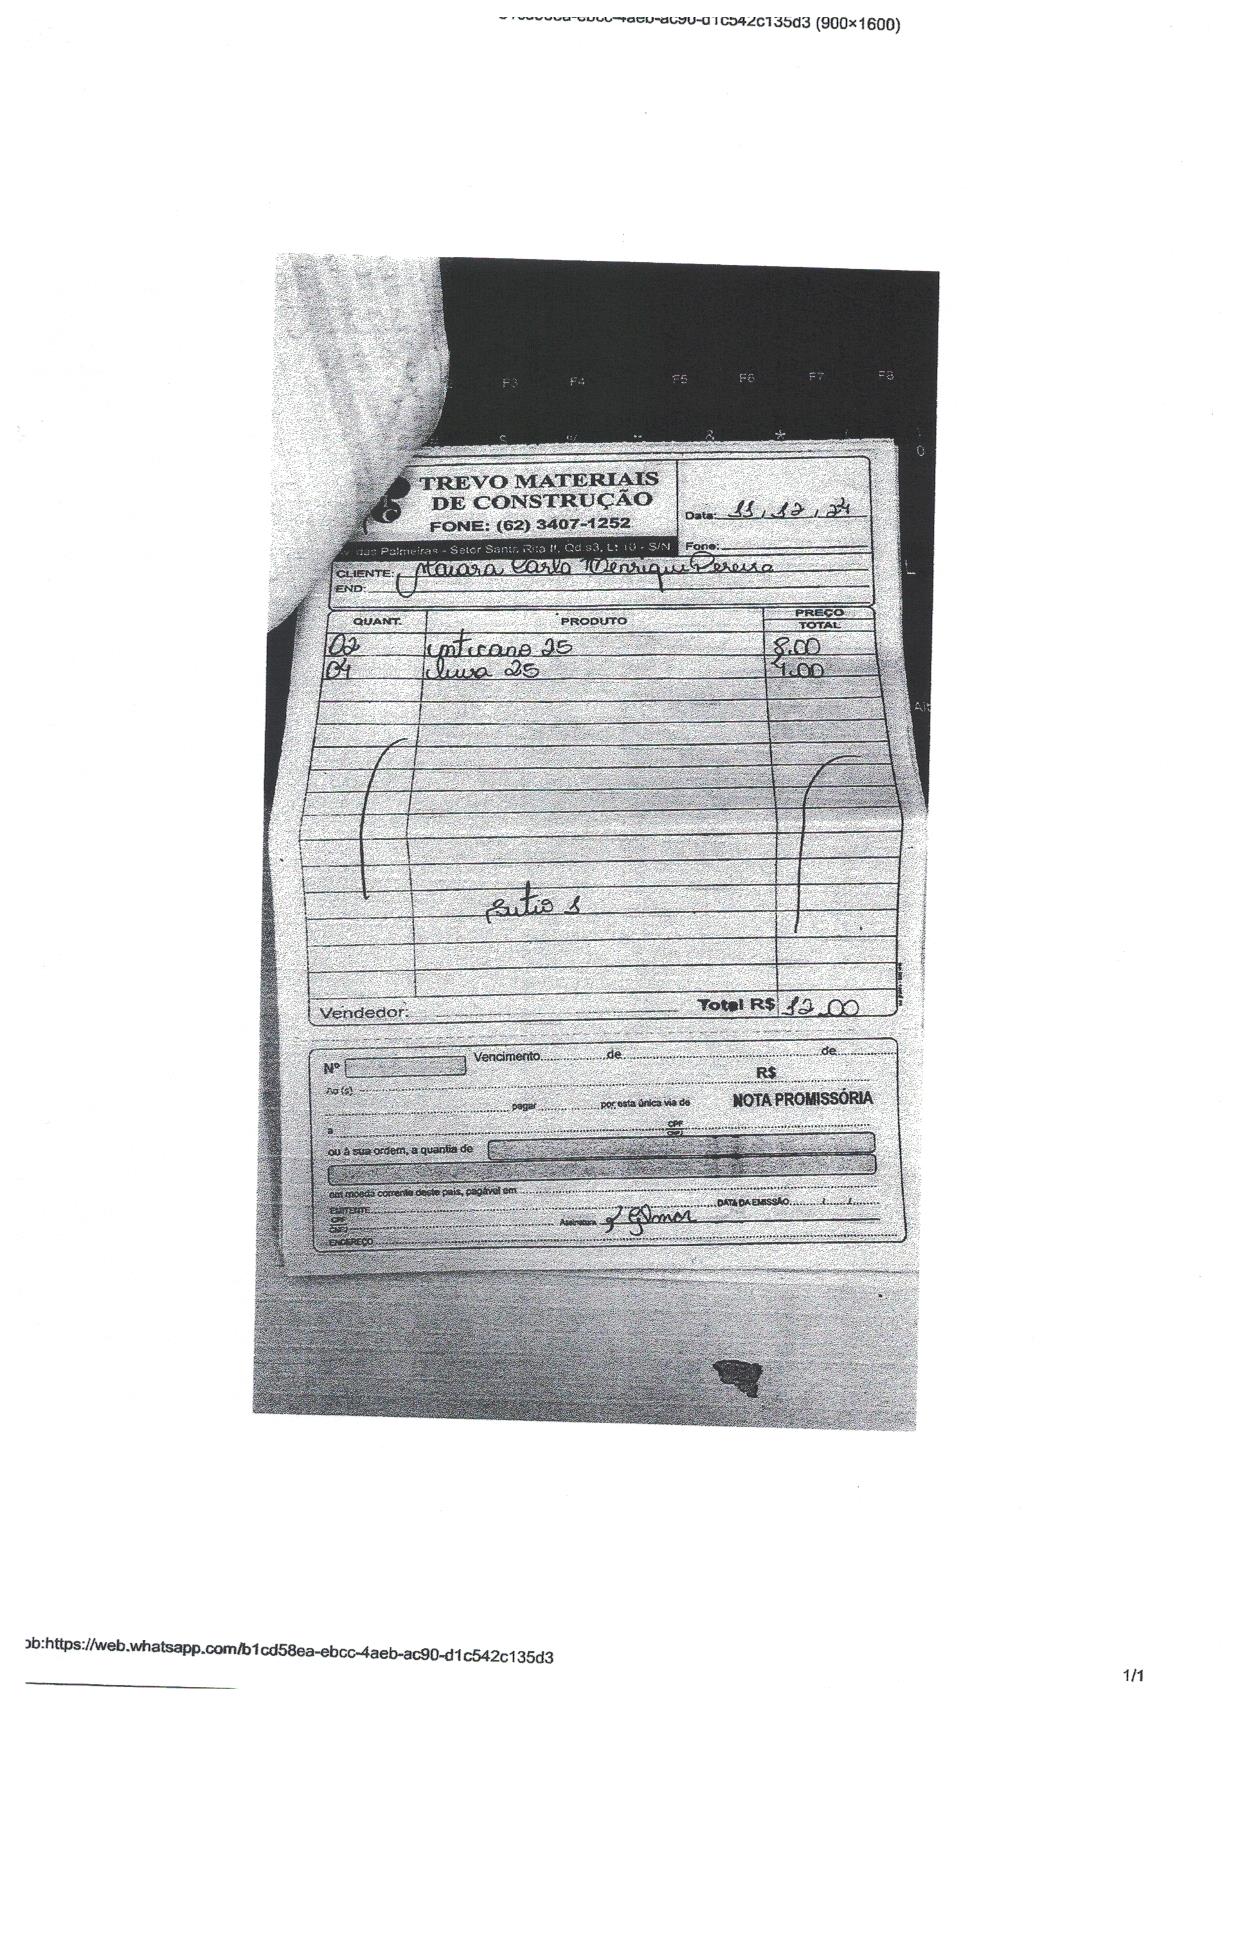 d1c542c135d3 (900×1600)
F3 F4 F5 F6 F7 F8
& *
0
TREVO MATERIAIS
DE CONSTRUÇÃO
FONE: (62) 3407-1252
das Palmeiras - Setor Santa Rita II, Qd.93, Lt 10 - S/N
Data: 11, 12, 24
Fone:
CLIENTE: Maiara Carlo Henrique Pereira
END:
QUANT. PRODUTO PREÇO TOTAL
02 25 8.00
04 luva 25 4.00
L
Alt
Sitio 1
Vendedor: Total R$ 12.00
Nº Vencimento de de
R$
Ao (s)
pagar por esta única via de NOTA PROMISSÓRIA
a CPF CNPJ
ou à sua ordem, a quantia de
em moeda corrente deste país, pagável em
EMITENTE DATA DA EMISSÃO / /
CPF CNPJ Assinatura Gilmar
ENDEREÇO
ob:https://web.whatsapp.com/b1cd58ea-ebcc-4aeb-ac90-d1c542c135d3
1/1